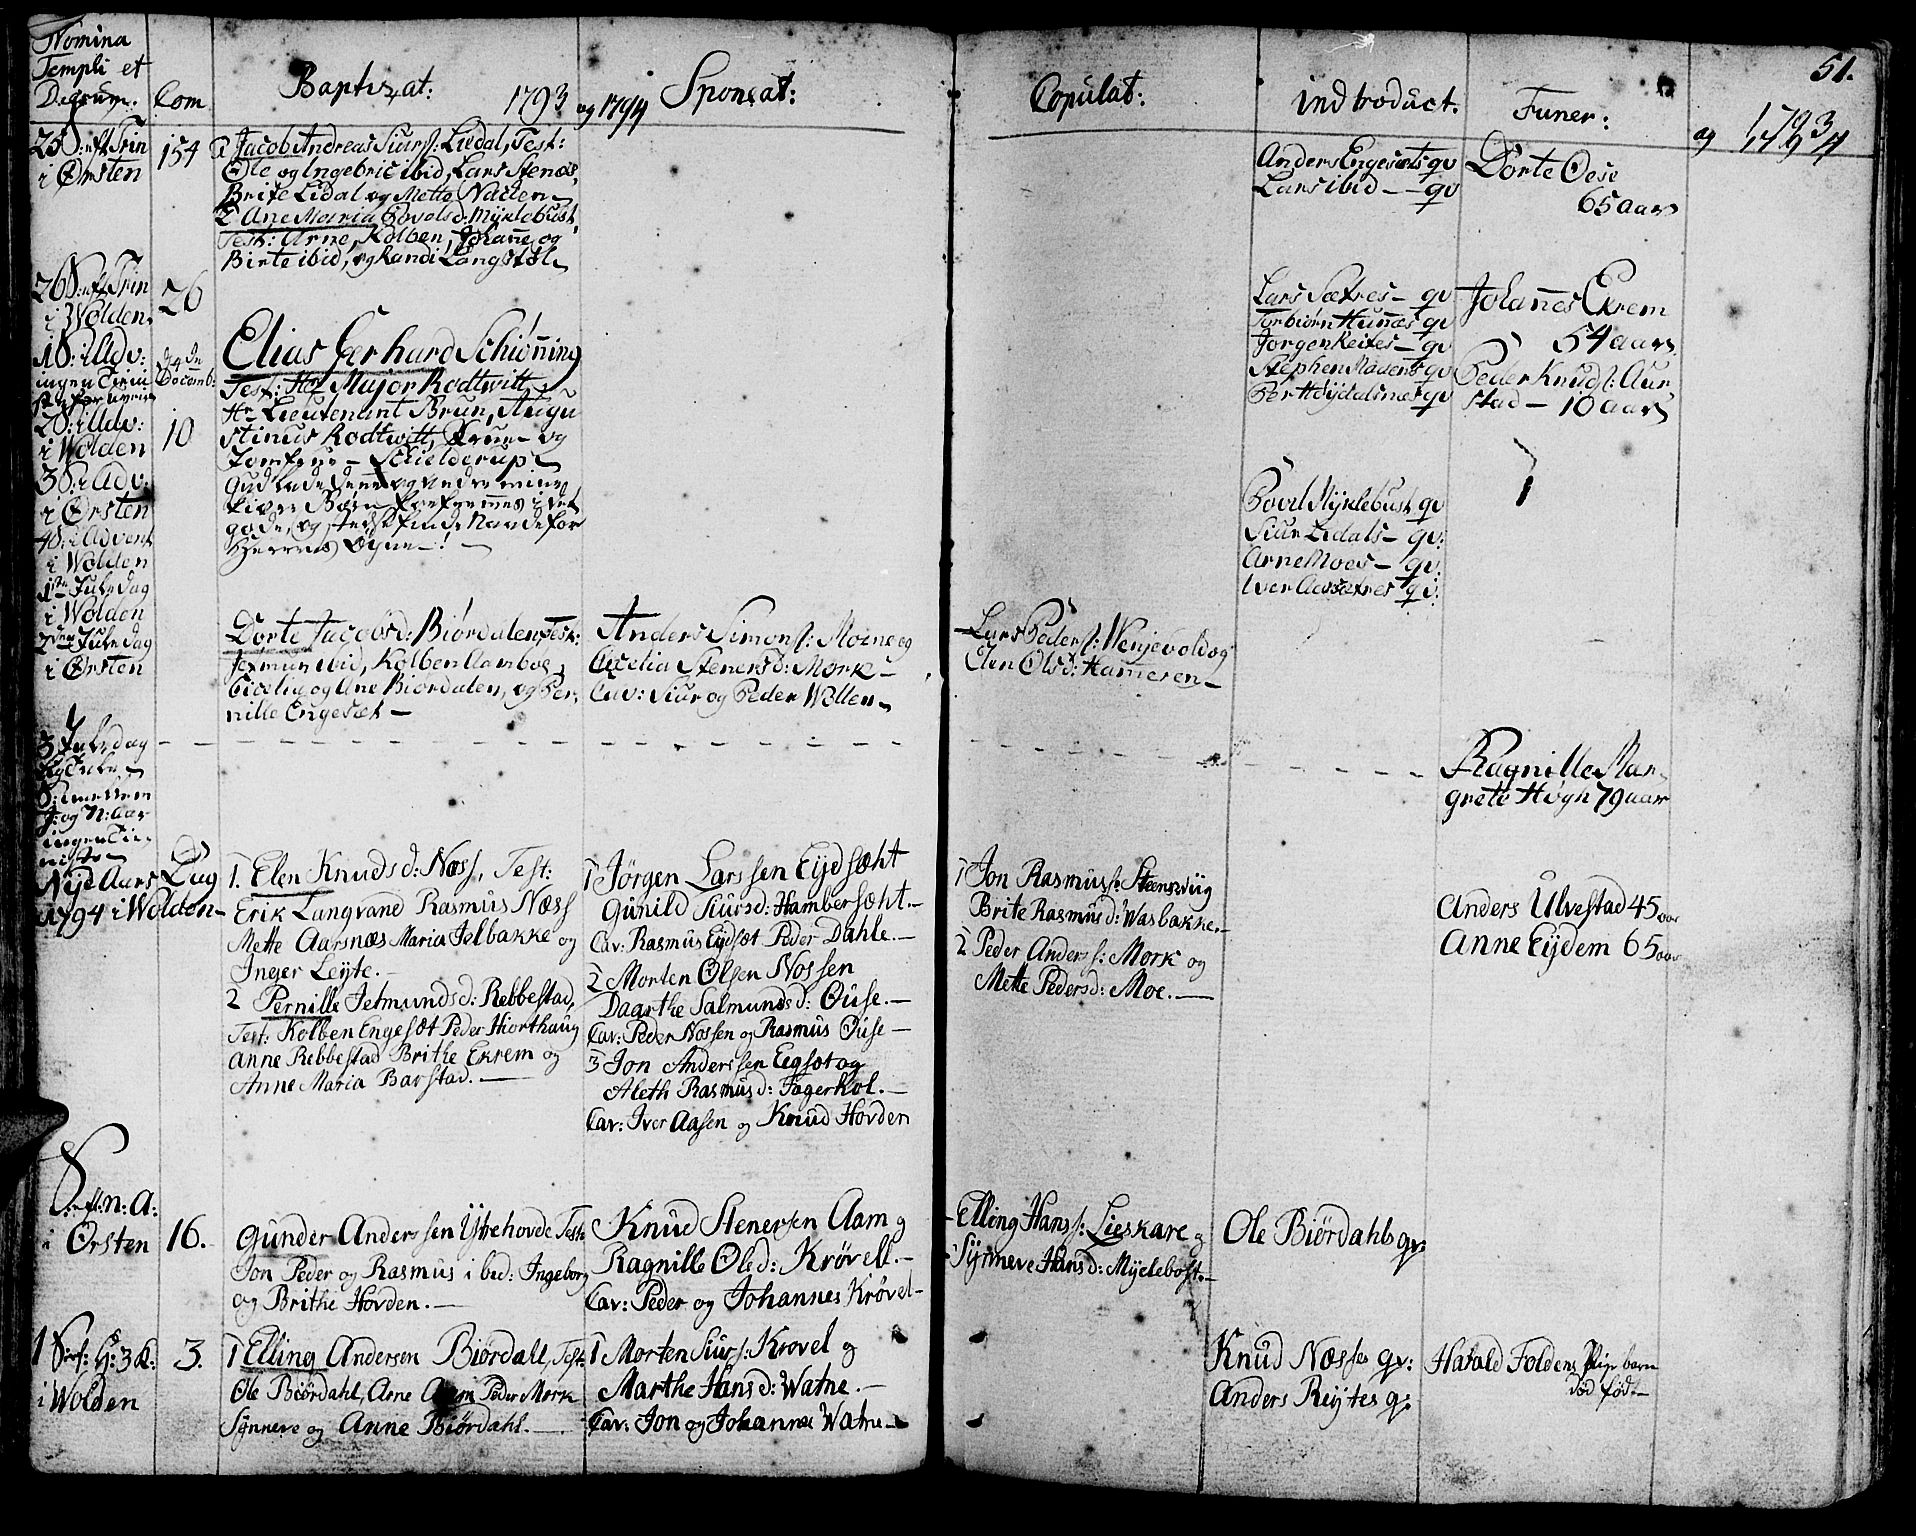 Nomina
Templi et
Dierum. Com
Baptizat: 1793 og 1794 Sponsat:
Copulat: introduct. Funer: og 1793
1794
51.
25 S: eft Trin
i Ørsten
154
1 Jacob Andreas Siurs: Lidal, Test:
Ole og Ingebric ibid, Lars Stenæs,
Brite Lidal og Mette Nauen
2 Ane Maria Povelsd: Myklebust,
Test: Arne, Kolben, Johane og
Birte ibid, og Randi Langstøl
Anders Engesæts qv
Lars ibid — qv
Dorte Oese
65 aar
26 S: eft Trin
i Wolden.
26
Lars Sætres — qv
Torbiørn Hunnæs qv
Jorgen Reites — qv
Stephen Madens qv
Per Høydalsnæs qv
Johannes Ekrem
54 aar.
Peder Knuds: Aur
stad — 10 aar
1 S: i Adv:
ingen Tieni
ste for uveir
d 4 de
Decemb:
Elias Gerhard Schiønning
Test: Hr Major Rodtwitt,
Hr Lieutenant Brun, Augu
stinus Rodtwitt, Frue — og
Jomfrue — Schielderup
Gud lade denne og andre mine
kiere Børn fremkommes i det
gode, og stedse finde Naade for
Herrens Øyne — ! —
2 S: i Adv:
i Wolden
10
3 S: i Adv:
i Ørsten
Povel Myklebust qv
Siur Lidals — qv:
Arne Moes — qv.
Iver Aassætres qv:
4 S: i Advent
i Wolden
1ste Juledag
i Wolden
2den Juledag
i Ørsten
Dorte Jacobsd: Biørdalen, Test:
Jermun ibid, Kolben Aambøe,
Cicelia og Ane Biørdalen, og Per,
nille Engesæt —
Anders Simons: Moene og
Cicelia Stenersd: Mork —
Cav: Siur og Peder Wollen
Lars Peders: Wenjevold og
Elen Olsd: Hameren —
3 Juledag
og Jule
S: imellem
J: og N: Aar
ingen Tie
niste
Ragnille Mar
grete Høgh 79 aar
Nyt Aars Dag
1794 i Wolden —
1. Elen Knudsd: Næss, Test:
Erik Langvand Rasmus Næss
Mette Aarsnæs Maria Jelbakke og
Inger Leyte. —
2 Pernille Jetmundsd: Rebbestad,
Test: Kolben Engesæt Peder Hiorthaug
Anne Rebbestad Brithe Ekrem og
Anne Maria Barstad. —
1 Jörgen Larssen Eydsæht
Gunild Siursd: Hambersæht. —
Cav: Rasmus Eydsæt Peder Dahle. —
2 Morten Olsen Nossen
Daarthe Salmundsd: Ouse. —
Cav: Peder Nossen og Rasmus Ouse —
3 Jon Anderssen Egsæt og
Aleth Rasmusd: Fagerhol. —
Cav: Iver Aasen og Knud Hovden
1 Jon Rasmuss: Steensvüg
Brite Rasmusd: Wasbakke. —
2 Peder Anderss: Mork og
Mette Pedersd: Moe. —
Anders Ulvestad 45 aar
Anne Eydem 65 aar
S: eft: n: A:
i Ørsten
16.
Gunder Anderssen Yttrehovde Test:
Jon Peder og Rasmus ibed: Ingeborg
og Brithe Hovden. —
Knud Stenersen Aam og
Ragnille Olsd: Krøvell. —
Cav: Peder og Johannes Krøvel —
Elling Hanss: Lieskare og
Synneve Hansd: Myclebost. —
Ole Biørdahls qv:
1 S: ef: H: 3 K:
i Wolden
3.
1 Elling Andersen Biørdahl, Test:
Ole Biørdahl, Arne Aam Peder Mork
Synneve og Anne Biørdahl. —
1 Morten Siurs: Krøvel og
Marthe Hansd: Watne. —
Cav: Jon og Johannæ Watne —
Knud Næsses qv:
Anders Reytes q:
Harald Foldens Pige barn
död födt —